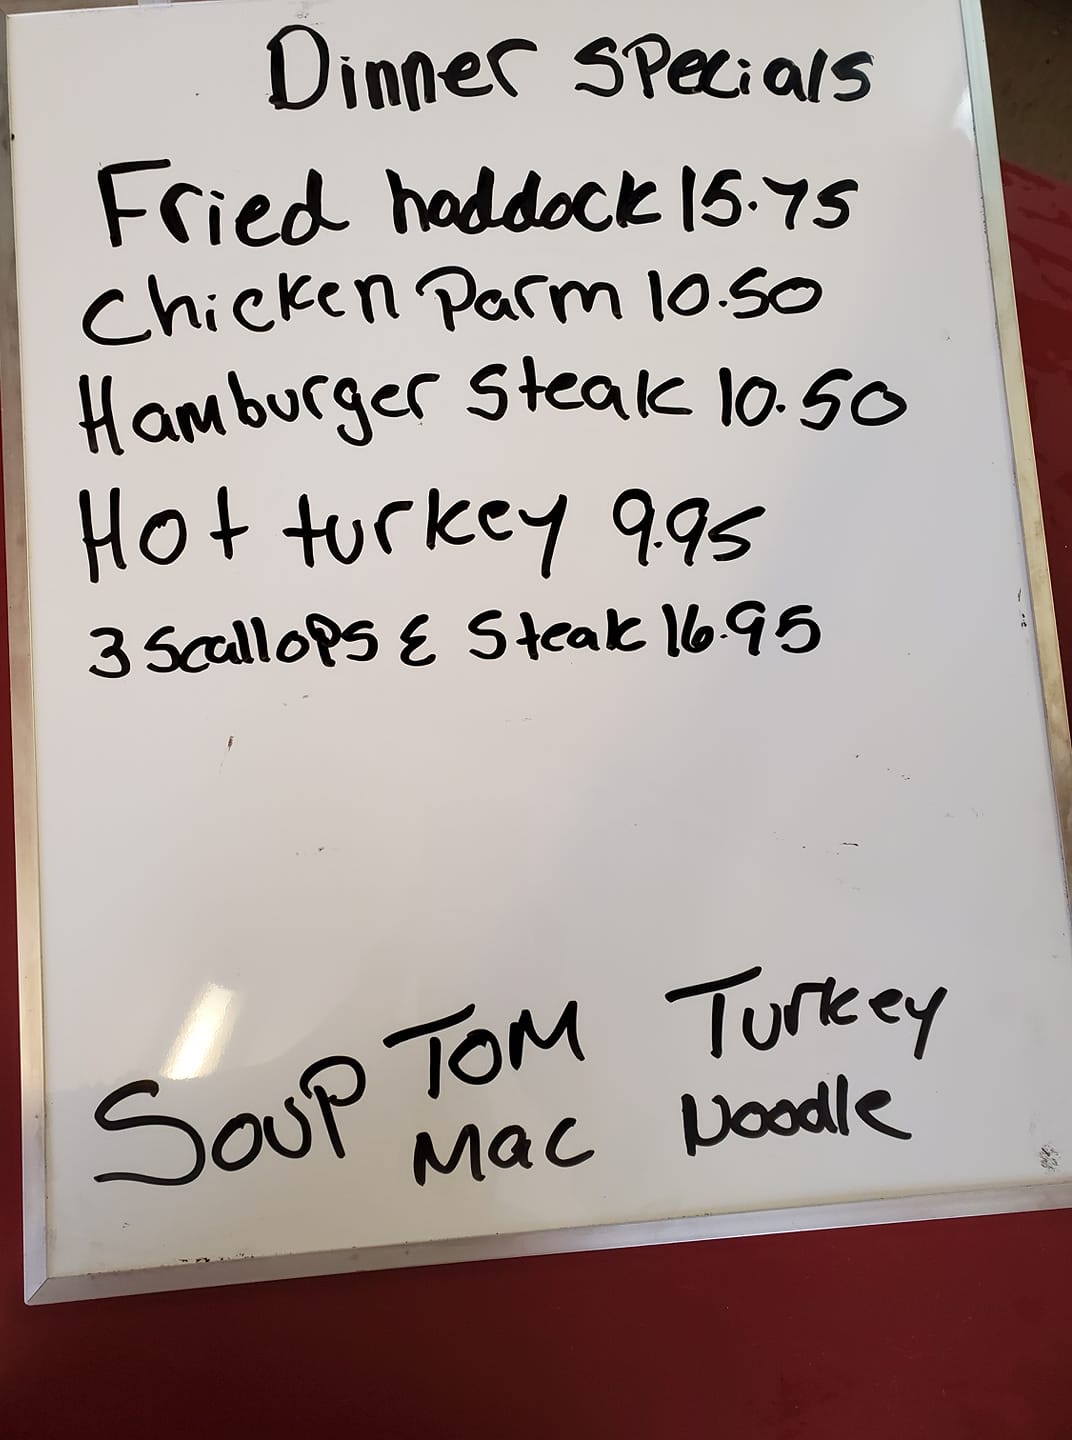 Dinner Specials
Fried haddock 15.75
Chicken Parm 10.50
Hamburger Steak 10.50
Hot turkey 9.95
3 Scallops & Steak 16.95
Soup Tom Mac Turkey Noodle